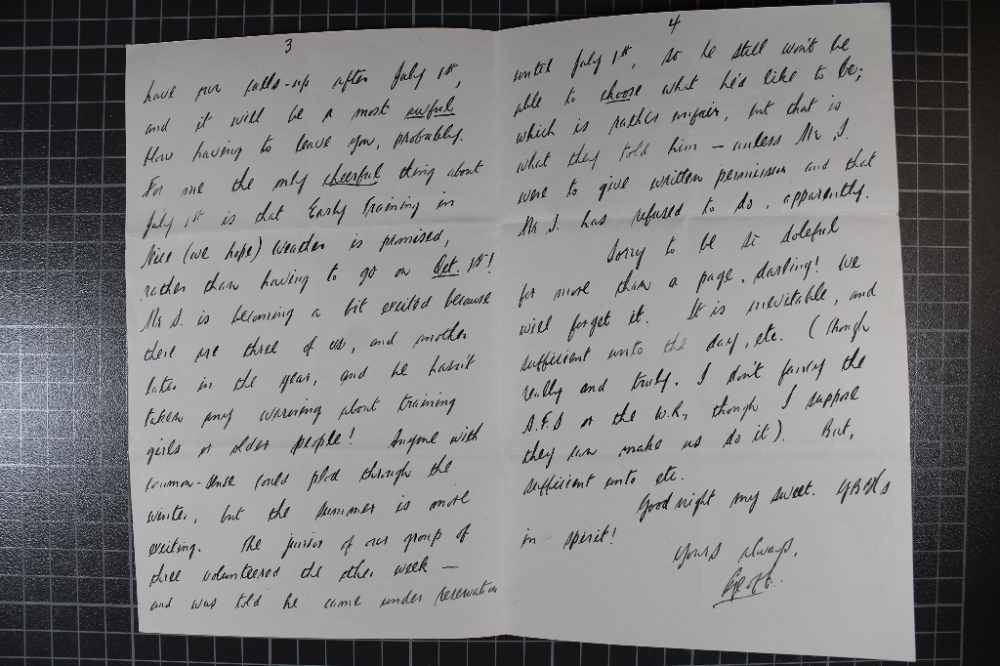 3
have our calls-up after July 1st,
and it will be a most awful
blow having to leave you, probably.
For me the only cheerful thing about
July 1st is that Early Training in
Nice (we hope) Weather is promised,
rather than having to go on Oct. 1st!
Mr S. is becoming a bit excited because
there are three of us, and another
later in the year, and he hasn't
taken any warning about training
girls or older people! Anyone with
common-sense could plod through the
winter, but the summer is more
exciting. The junior of our group of
three volunteered the other week —
and was told he came under reservation
4
until July 1st, so he still won't be
able to choose what he'd like to be;
which is rather unfair, but that is
what they told him — unless Mr S.
were to give written permission and that
Mr S. has refused to do, apparently.
Sorry to be so doleful
for more than a page, darling! We
will forget it. It is inevitable, and
sufficient unto the day, etc. (Though
really and truly, I don't fancy the
A.F.S or the W.R, though I suppose
they can make us do it). But,
sufficient unto etc.
Good night my sweet.
in spirit!
Yours always,